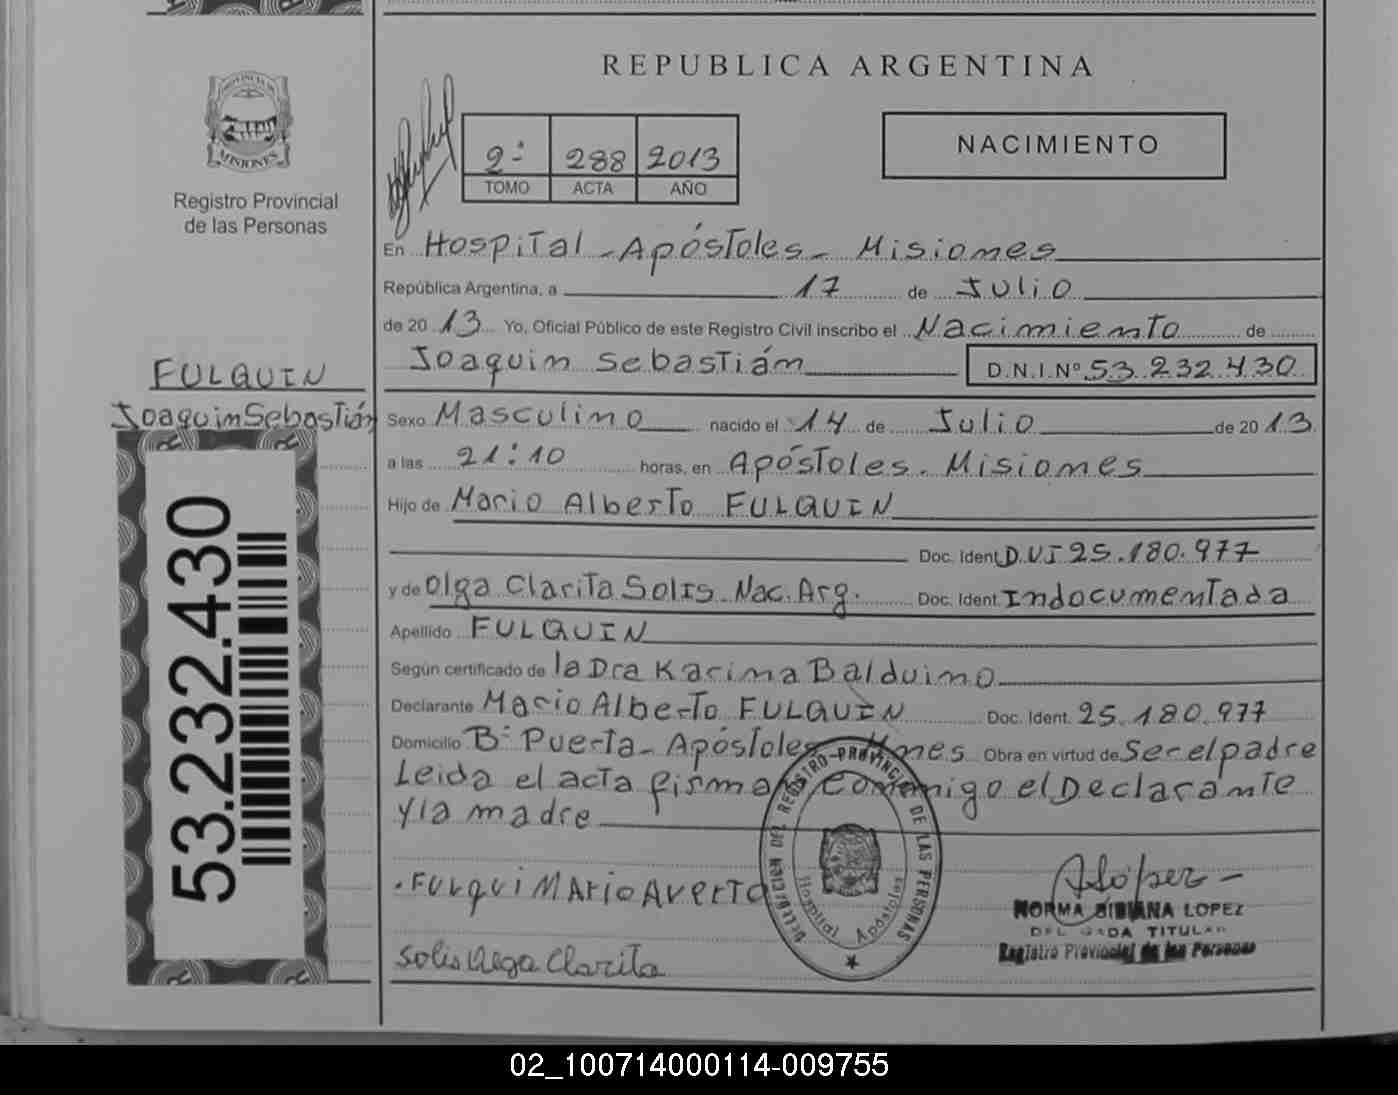 REPUBLICA ARGENTINA
PROVINCIA DE
MISIONES
Registro Provincial
de las Personas
2ª 288 2013
TOMO ACTA AÑO
NACIMIENTO
En Hospital - Apóstoles - Misiones
República Argentina, a 17 de Julio
de 2013 Yo, Oficial Público de este Registro Civil inscribo el Nacimiento de
Joaquin Sebastián D.N.I.Nº 53.232.430
FULQUIN
Joaquin Sebastián
Sexo Masculino nacido el 14 de Julio de 2013
a las 21:10 horas, en Apóstoles. Misiones
Hijo de Mario Alberto FULQUIN
Doc. Ident. D.U.I 25.180.977
y de Olga Clarita Solis Nac. Arg. Doc. Ident. Indocumentada
Apellido FULQUIN
Según certificado de la Dra Karina Balduino
Declarante Mario Alberto FULQUIN Doc. Ident. 25.180.977
Domicilio Bº Puerta - Apóstoles - Mnes Obra en virtud de Ser el padre
Leida el acta firman Conmigo el Declarante
y la madre
53.232.430
FULQUI MARio AVERTO
Solis Olga Clarita
DELEGACION DEL REGISTRO PROVINCIAL DE LAS PERSONAS
Hospital Apóstoles
NORMA BIBIANA LOPEZ
DELEGADA TITULAR
Registro Provincial de las Personas
02_100714000114-009755